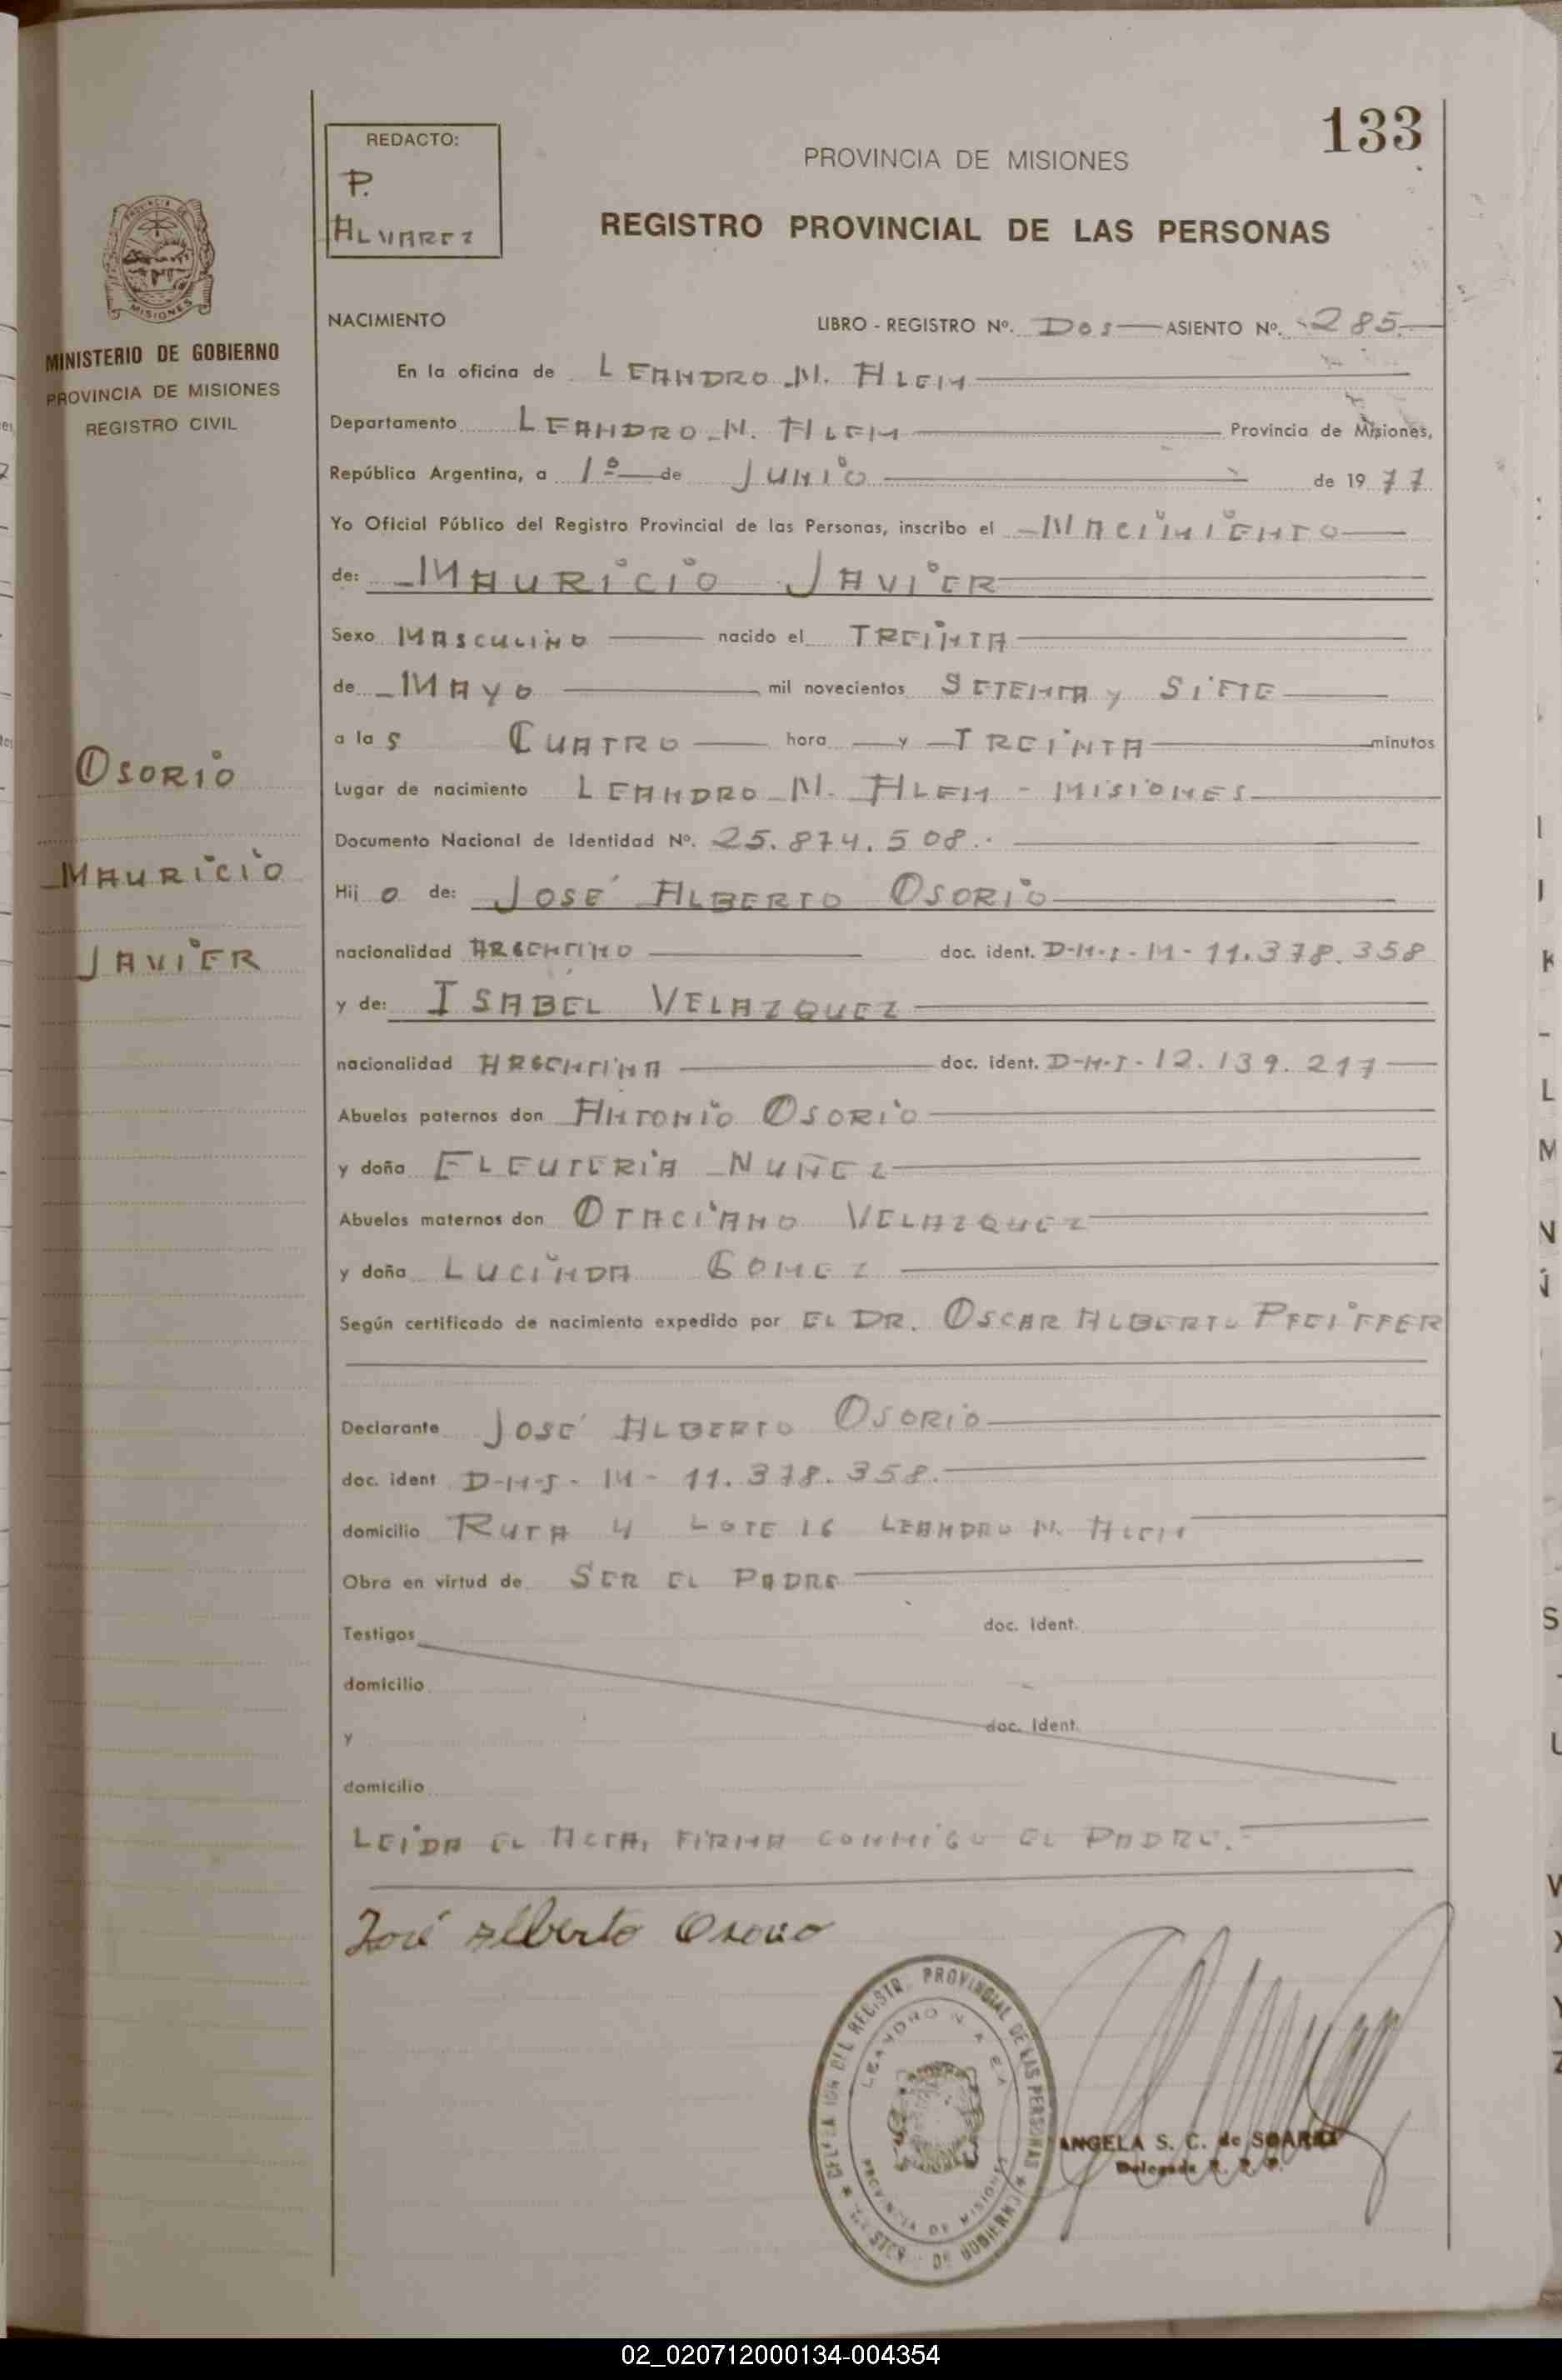 133
REDACTO:
P.
ALVAREZ
PROVINCIA DE MISIONES
REGISTRO PROVINCIAL DE LAS PERSONAS
PROVINCIA DE
MISIONES
MINISTERIO DE GOBIERNO
PROVINCIA DE MISIONES
REGISTRO CIVIL
OSORIO
MAURICIO
JAVIER
NACIMIENTO LIBRO - REGISTRO Nº. DOS ASIENTO Nº. 285.
En la oficina de LEANDRO N. ALEM
Departamento LEANDRO N. ALEM Provincia de Misiones,
República Argentina, a 1º de JUNIO de 1977
Yo Oficial Público del Registro Provincial de las Personas, inscribo el NACIMIENTO
de: MAURICIO JAVIER
Sexo MASCULINO nacido el TREINTA
de MAYO mil novecientos SETENTA y SIETE
a las CUATRO hora y TREINTA minutos
Lugar de nacimiento LEANDRO N. ALEM - MISIONES
Documento Nacional de Identidad Nº. 25.874.508.
Hijo de: JOSÉ ALBERTO OSORIO
nacionalidad ARGENTINO doc. ident. D-N-I-M-11.378.358
y de: ISABEL VELAZQUEZ
nacionalidad ARGENTINA doc. ident. D-N-I-12.139.217
Abuelos paternos don ANTONIO OSORIO
y doña ELEUTERIA NUÑEZ
Abuelos maternos don OTACIANO VELAZQUEZ
y doña LUCINDA GOMEZ
Según certificado de nacimiento expedido por EL DR. OSCAR ALBERTO PFEIFFER
Declarante JOSÉ ALBERTO OSORIO
doc. ident D-N-I-M-11.378.358.
domicilio RUTA 4 LOTE 16 LEANDRO N. ALEM
Obra en virtud de SER EL PADRE
Testigos doc. ident.
domicilio
y doc. ident.
domicilio
LEIDA EL ACTA, FIRMA CONMIGO EL PADRE.-
José Alberto Osorio
DEL REGISTR PROVINCIAL DE LAS PERSONAS
LEANDRO N.
PROVINCIA DE MISIONES
DE GOBIERN
ANGELA S. C. de
Delegada R. P. P.
02_020712000134-004354